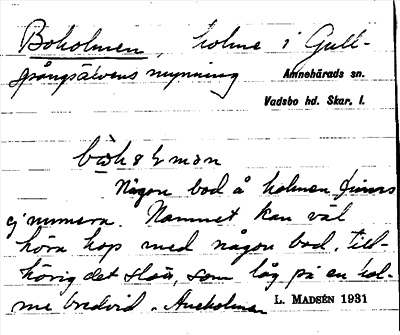 Boholmen, holme i Gull-
spångsälvens mynning
Amnehärads sn.
Vadsbo hd. Skar. l.
Någon bod å holmen finns
ej numera. Namnet kan väl
höra hop med någon bod, till-
hörig det slott, som låg på en hol-
me bredvid, Aneholmen
L. MADSÉN 1931